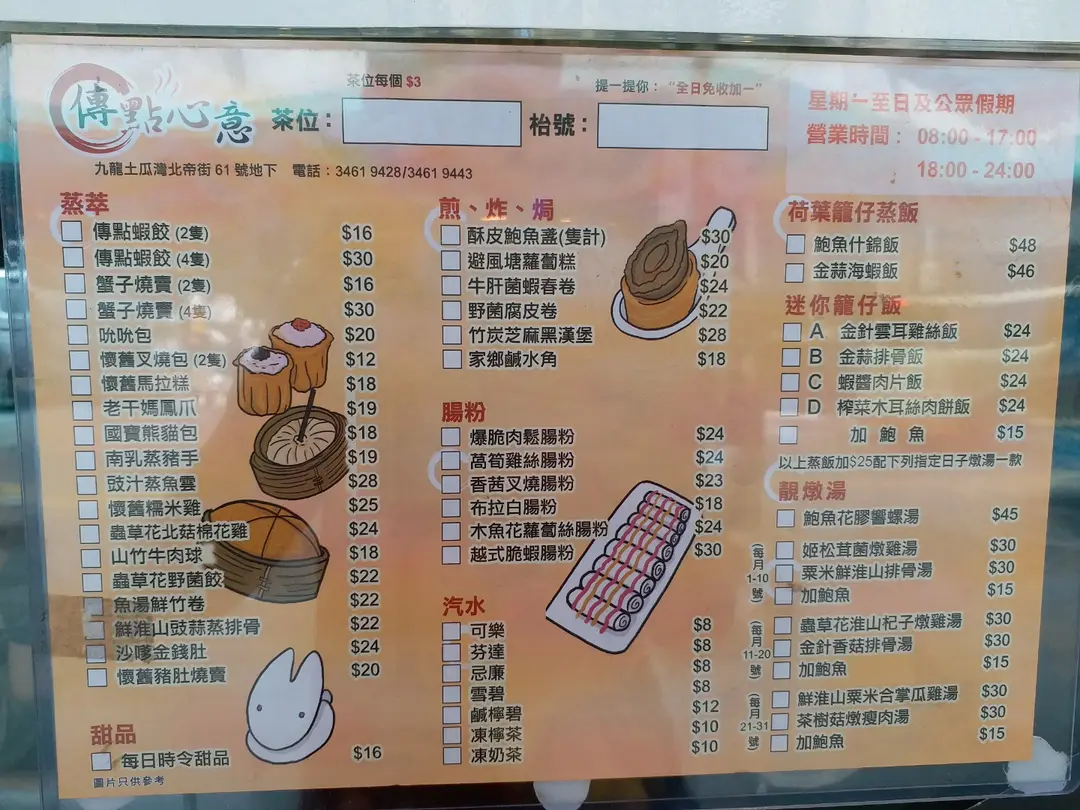 傳點心意
茶位每個 $3
茶位：
提一提你：“全日免收加一”
枱號：
星期一至日及公眾假期
營業時間： 08:00 - 17:00
18:00 - 24:00
九龍土瓜灣北帝街 61 號地下 電話：3461 9428/3461 9443
蒸萃
傳點蝦餃 (2隻) $16
傳點蝦餃 (4隻) $30
蟹子燒賣 (2隻) $16
蟹子燒賣 (4隻) $30
吮吮包 $20
懷舊叉燒包 (2隻) $12
懷舊馬拉糕 $18
老干媽鳳爪 $19
國寶熊貓包 $18
南乳蒸豬手 $19
豉汁蒸魚雲 $28
懷舊糯米雞 $25
蟲草花北菇棉花雞 $24
山竹牛肉球 $18
蟲草花野菌餃 $22
魚湯鮮竹卷 $22
鮮淮山豉蒜蒸排骨 $22
沙嗲金錢肚 $24
懷舊豬肚燒賣 $20
甜品
每日時令甜品 $16
圖片只供參考
煎、炸、焗
酥皮鮑魚盞(隻計) $30
避風塘蘿蔔糕 $20
牛肝菌蝦春卷 $24
野菌腐皮卷 $22
竹炭芝麻黑漢堡 $28
家鄉鹹水角 $18
腸粉
爆脆肉鬆腸粉 $24
萵筍雞絲腸粉 $24
香茜叉燒腸粉 $23
布拉白腸粉 $18
木魚花蘿蔔絲腸粉 $24
越式脆蝦腸粉 $30
汽水
可樂 $8
芬達 $8
忌廉 $8
雪碧 $8
鹹檸碧 $12
凍檸茶 $10
凍奶茶 $10
荷葉籠仔蒸飯
鮑魚什錦飯 $48
金蒜海蝦飯 $46
迷你籠仔飯
A 金針雲耳雞絲飯 $24
B 金蒜排骨飯 $24
C 蝦醬肉片飯 $24
D 榨菜木耳絲肉餅飯 $24
加 鮑 魚 $15
以上蒸飯加$25配下列指定日子燉湯一款
靚燉湯
鮑魚花膠響螺湯 $45
(每月1-10號)
姬松茸菌燉雞湯 $30
粟米鮮淮山排骨湯 $30
加鮑魚 $15
(每月11-20號)
蟲草花淮山杞子燉雞湯 $30
金針香菇排骨湯 $30
加鮑魚 $15
(每月21-31號)
鮮淮山粟米合掌瓜雞湯 $30
茶樹菇燉瘦肉湯 $30
加鮑魚 $15